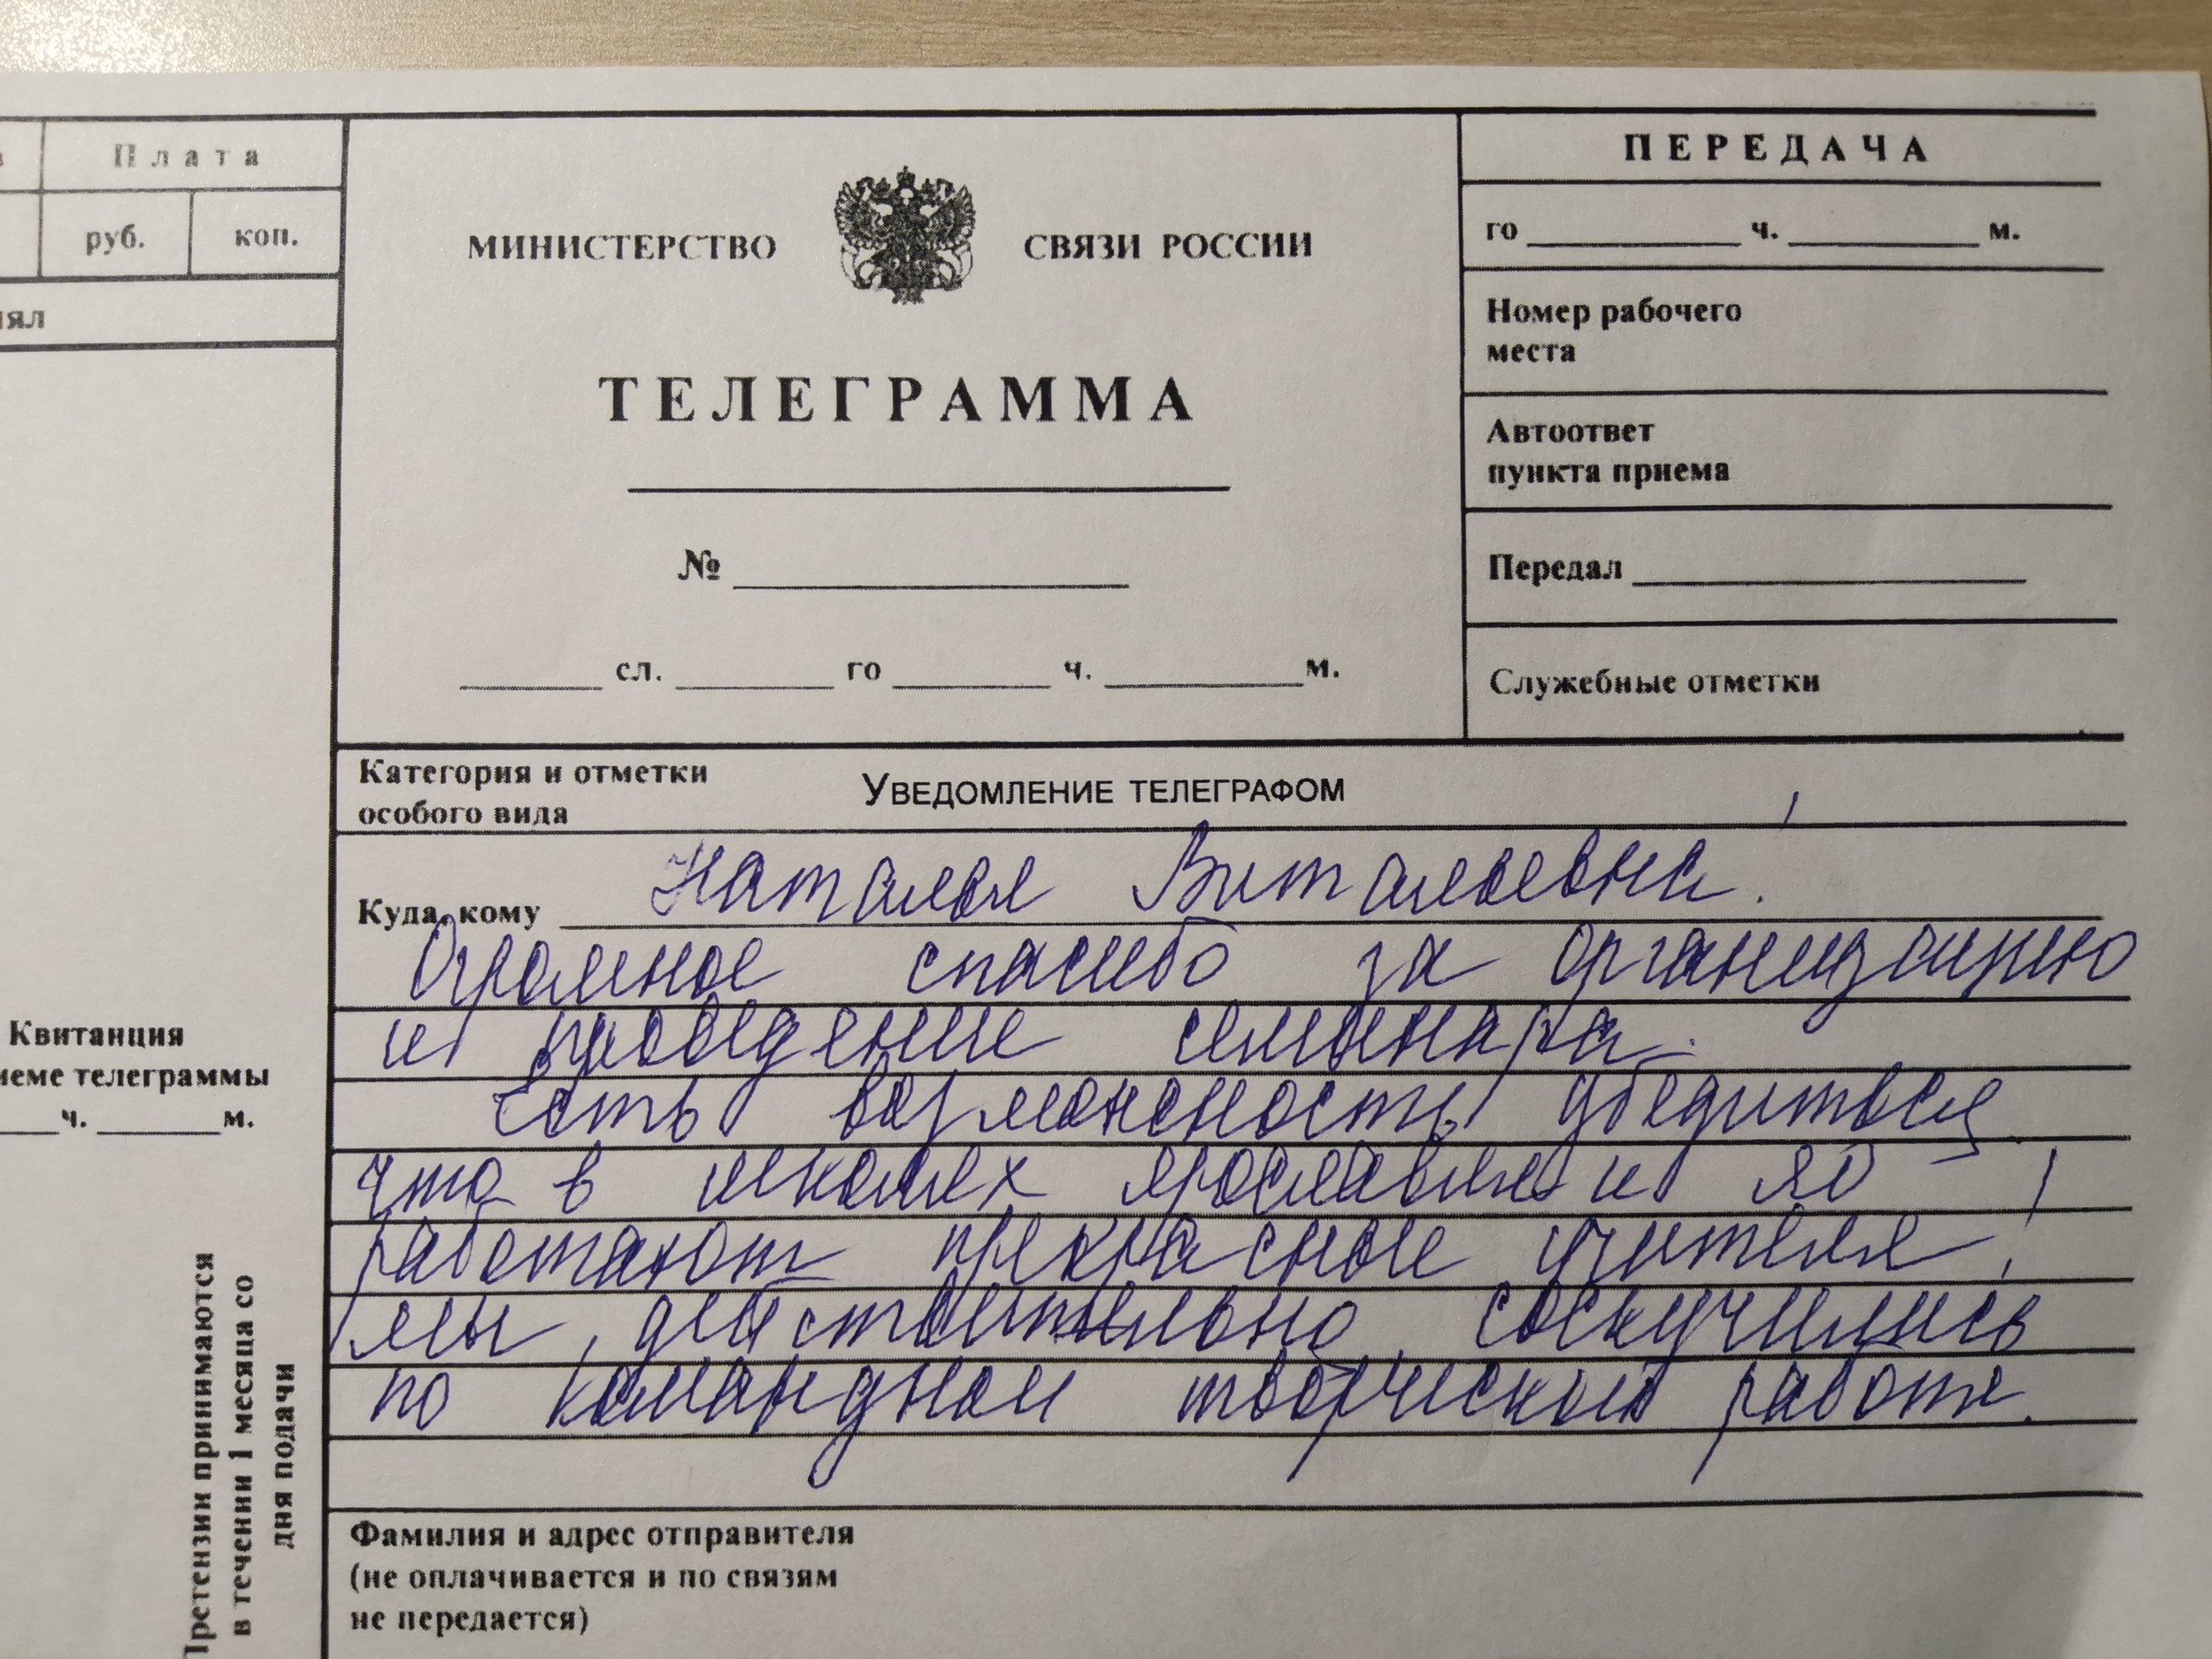 Плата
руб. коп.
МИНИСТЕРСТВО СВЯЗИ РОССИИ
ТЕЛЕГРАММА
№
сл. го ч. м.
ПЕРЕДАЧА
го ч. м.
Номер рабочего
места
Автоответ
пункта приема
Передал
Служебные отметки
Категория и отметки
особого вида
УВЕДОМЛЕНИЕ ТЕЛЕГРАФОМ
Куда, кому Наталья Витальевна!
Огромное спасибо за организацию
и проведение семинара.
Есть возможность убедиться,
что в школах Ярославля и ЯО
работают прекрасные учителя!
Мы, действительно, соскучились
по командной творческой работе.
Фамилия и адрес отправителя
(не оплачивается и по связям
не передается)
Квитанция
телеграммы
ч. м.
Претензии принимаются
в течении 1 месяца со
дня подачи